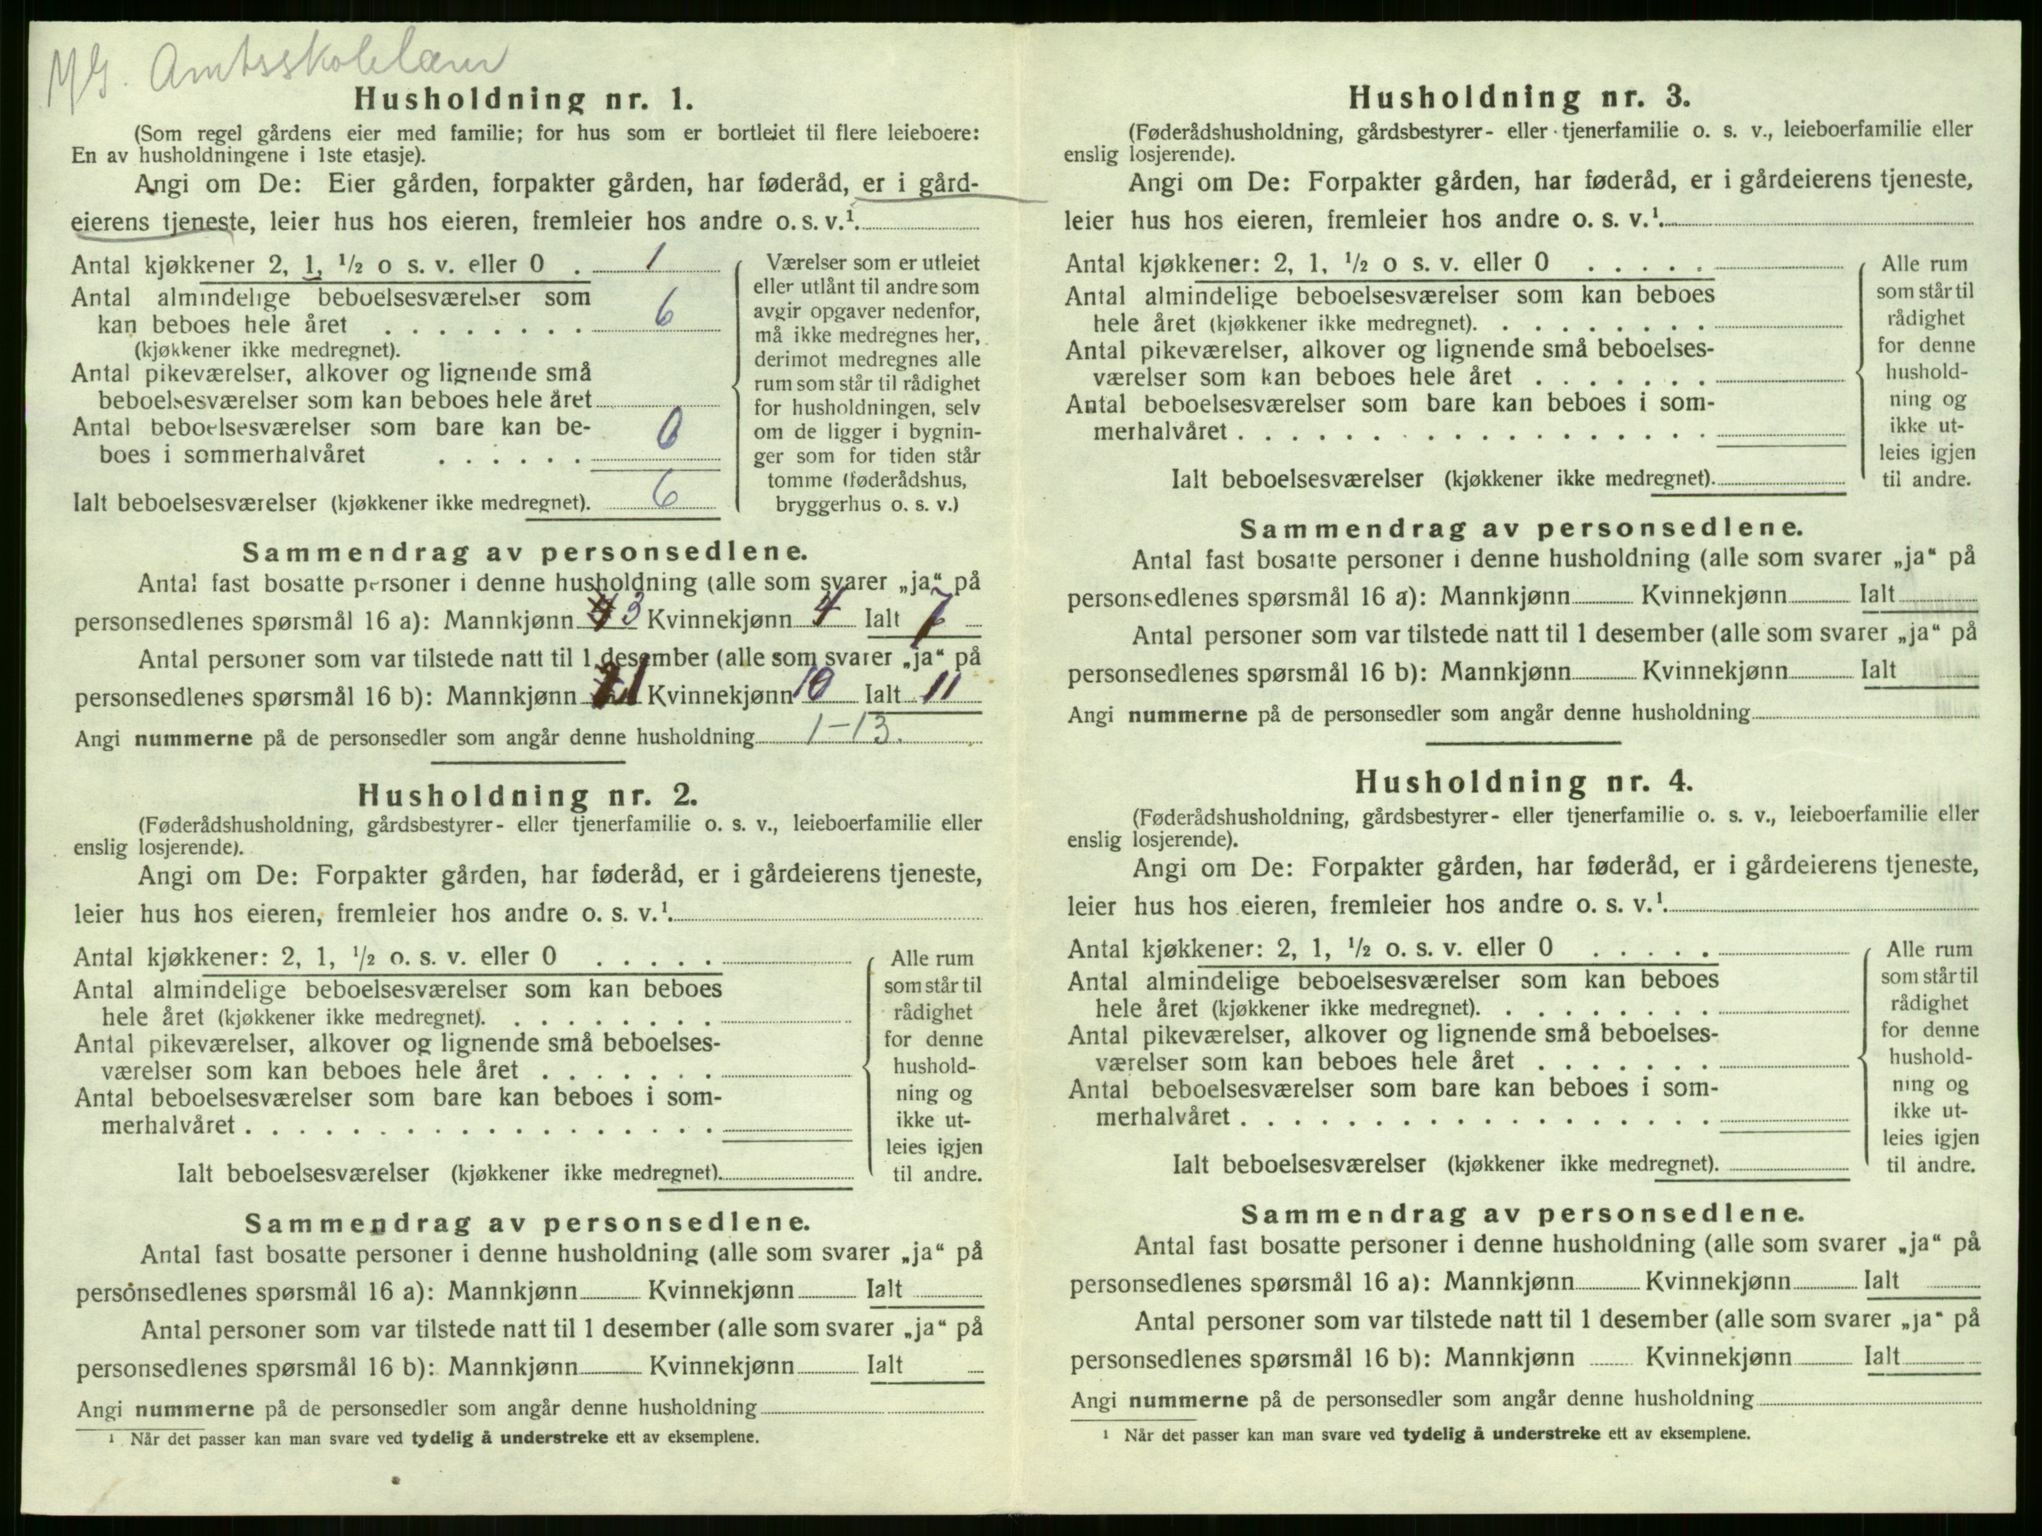 M/G. Amtsskolelærer
Husholdning nr. 1.
(Som regel gårdens eier med familie; for hus som er bortleiet til flere leieboere:
En av husholdningene i 1ste etasje).
Angi om De: Eier gården, forpakter gården, har føderåd, er i gård-
eierens tjeneste, leier hus hos eieren, fremleier hos andre o. s. v.¹.
Antal kjøkkener 2, 1, ½ o s. v. eller 0 . 1
Antal almindelige beboelsesværelser som
kan beboes hele året . . . . . . . . 6
(kjøkkener ikke medregnet).
Antal pikeværelser, alkover og lignende små
beboelsesværelser som kan beboes hele året
Antal beboelsesværelser som bare kan be-
boes i sommerhalvåret . . . . . . 0
Ialt beboelsesværelser (kjøkkener ikke medregnet). 6
Værelser som er utleiet
eller utlånt til andre som
avgir opgaver nedenfor,
må ikke medregnes her,
derimot medregnes alle
rum som står til rådighet
for husholdningen, selv
om de ligger i bygnin-
ger som for tiden står
tomme (føderådshus,
bryggerhus o. s. v.)
Sammendrag av personsedlene.
Antal fast bosatte personer i denne husholdning (alle som svarer „ja“ på
personsedlenes spørsmål 16 a): Mannkjønn 3 Kvinnekjønn 4 Ialt 7
Antal personer som var tilstede natt til 1 desember (alle som svarer „ja“ på
personsedlenes spørsmål 16 b): Mannkjønn 1 Kvinnekjønn 10 Ialt 11
Angi nummerne på de personsedler som angår denne husholdning 1-13.
Husholdning nr. 2.
(Føderådshusholdning, gårdsbestyrer- eller tjenerfamilie o. s. v., leieboerfamilie eller
enslig losjerende).
Angi om De: Forpakter gården, har føderåd, er i gårdeierens tjeneste,
leier hus hos eieren, fremleier hos andre o. s. v.¹.
Antal kjøkkener: 2, 1, ½ o. s. v. eller 0 . . . . .
Antal almindelige beboelsesværelser som kan beboes
hele året (kjøkkener ikke medregnet). . . . . . . . .
Antal pikeværelser, alkover og lignende små beboelses-
værelser som kan beboes hele året . . . . . . .
Antal beboelsesværelser som bare kan beboes i som-
merhalvåret . . . . . . . . . . . . . . . . . .
Ialt beboelsesværelser (kjøkkener ikke medregnet).
Alle rum
som står til
rådighet
for denne
hushold-
ning og
ikke ut-
leies igjen
til andre.
Sammendrag av personsedlene.
Antal fast bosatte personer i denne husholdning (alle som svarer „ja“ på
personsedlenes spørsmål 16 a): Mannkjønn Kvinnekjønn Ialt
Antal personer som var tilstede natt til 1 desember (alle som svarer „ja“ på
personsedlenes spørsmål 16 b): Mannkjønn Kvinnekjønn Ialt
Angi nummerne på de personsedler som angår denne husholdning
¹ Når det passer kan man svare ved tydelig å understreke ett av eksemplene.
Husholdning nr. 3.
(Føderådshusholdning, gårdsbestyrer- eller tjenerfamilie o. s. v., leieboerfamilie eller
enslig losjerende).
Angi om De: Forpakter gården, har føderåd, er i gårdeierens tjeneste,
leier hus hos eieren, fremleier hos andre o. s. v.¹.
Antal kjøkkener: 2, 1, ½ o s. v. eller 0 . . . . .
Antal almindelige beboelsesværelser som kan beboes
hele året (kjøkkener ikke medregnet). . . . . . . . .
Antal pikeværelser, alkover og lignende små beboelses-
værelser som kan beboes hele året . . . . . . .
Antal beboelsesværelser som bare kan beboes i som-
merhalvåret . . . . . . . . . . . . . . . . . .
Ialt beboelsesværelser (kjøkkener ikke medregnet).
Alle rum
som står til
rådighet
for denne
hushold-
ning og
ikke ut-
leies igjen
til andre.
Sammendrag av personsedlene.
Antal fast bosatte personer i denne husholdning (alle som svarer „ja“ på
personsedlenes spørsmål 16 a): Mannkjønn Kvinnekjønn Ialt
Antal personer som var tilstede natt til 1 desember (alle som svarer „ja“ på
personsedlenes spørsmål 16 b): Mannkjønn Kvinnekjønn Ialt
Angi nummerne på de personsedler som angår denne husholdning
Husholdning nr. 4.
(Føderådshusholdning, gårdsbestyrer- eller tjenerfamilie o. s. v., leieboerfamilie eller
enslig losjerende).
Angi om De: Forpakter gården, har føderåd, er i gårdeierens tjeneste,
leier hus hos eieren, fremleier hos andre o. s. v.¹.
Antal kjøkkener: 2, 1, ½ o. s. v. eller 0 . . . . .
Antal almindelige beboelsesværelser som kan beboes
hele året (kjøkkener ikke medregnet). . . . . . . . .
Antal pikeværelser, alkover og lignende små beboelses-
værelser som kan beboes hele året . . . . . . .
Antal beboelsesværelser som bare kan beboes i som-
merhalvåret . . . . . . . . . . . . . . . . . .
Ialt beboelsesværelser (kjøkkener ikke medregnet).
Alle rum
som står til
rådighet
for denne
hushold-
ning og
ikke ut-
leies igjen
til andre.
Sammendrag av personsedlene.
Antal fast bosatte personer i denne husholdning (alle som svarer „ja“ på
personsedlenes spørsmål 16 a): Mannkjønn Kvinnekjønn Ialt
Antal personer som var tilstede natt til 1 desember (alle som svarer „ja“ på
personsedlenes spørsmål 16 b): Mannkjønn Kvinnekjønn Ialt
Angi nummerne på de personsedler som angår denne husholdning
¹ Når det passer kan man svare ved tydelig å understreke ett av eksemplene.